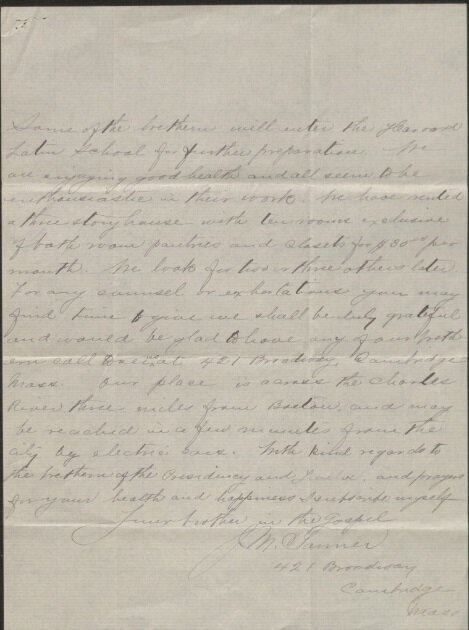 Some of the brethern will enter the Harvard
Latin School for further preparation. We
are enjoying good health and all seem to be
enthusiastic in their work. We have rented
a three story house with ten rooms exclusive
of bath room pantries and closets for $30.00 per
month. We look for two or three others later.
For any counsel or exhortations you may
find time to give we shall be duly grateful
and would be glad to have any of our breth
ern call to see us at 421 Broadway, Cambridge
Mass. Our place is across the Charles
River three miles from Boston, and may
be reached in a few minutes from the
city by electric cars. With kind regards to
the brethern of the Presidency and Twelve, and prayers
for your health and happiness I subscribe myself
Your brother in the Gospel
J. M. Tanner
421 Broadway
Cambridge
Mass